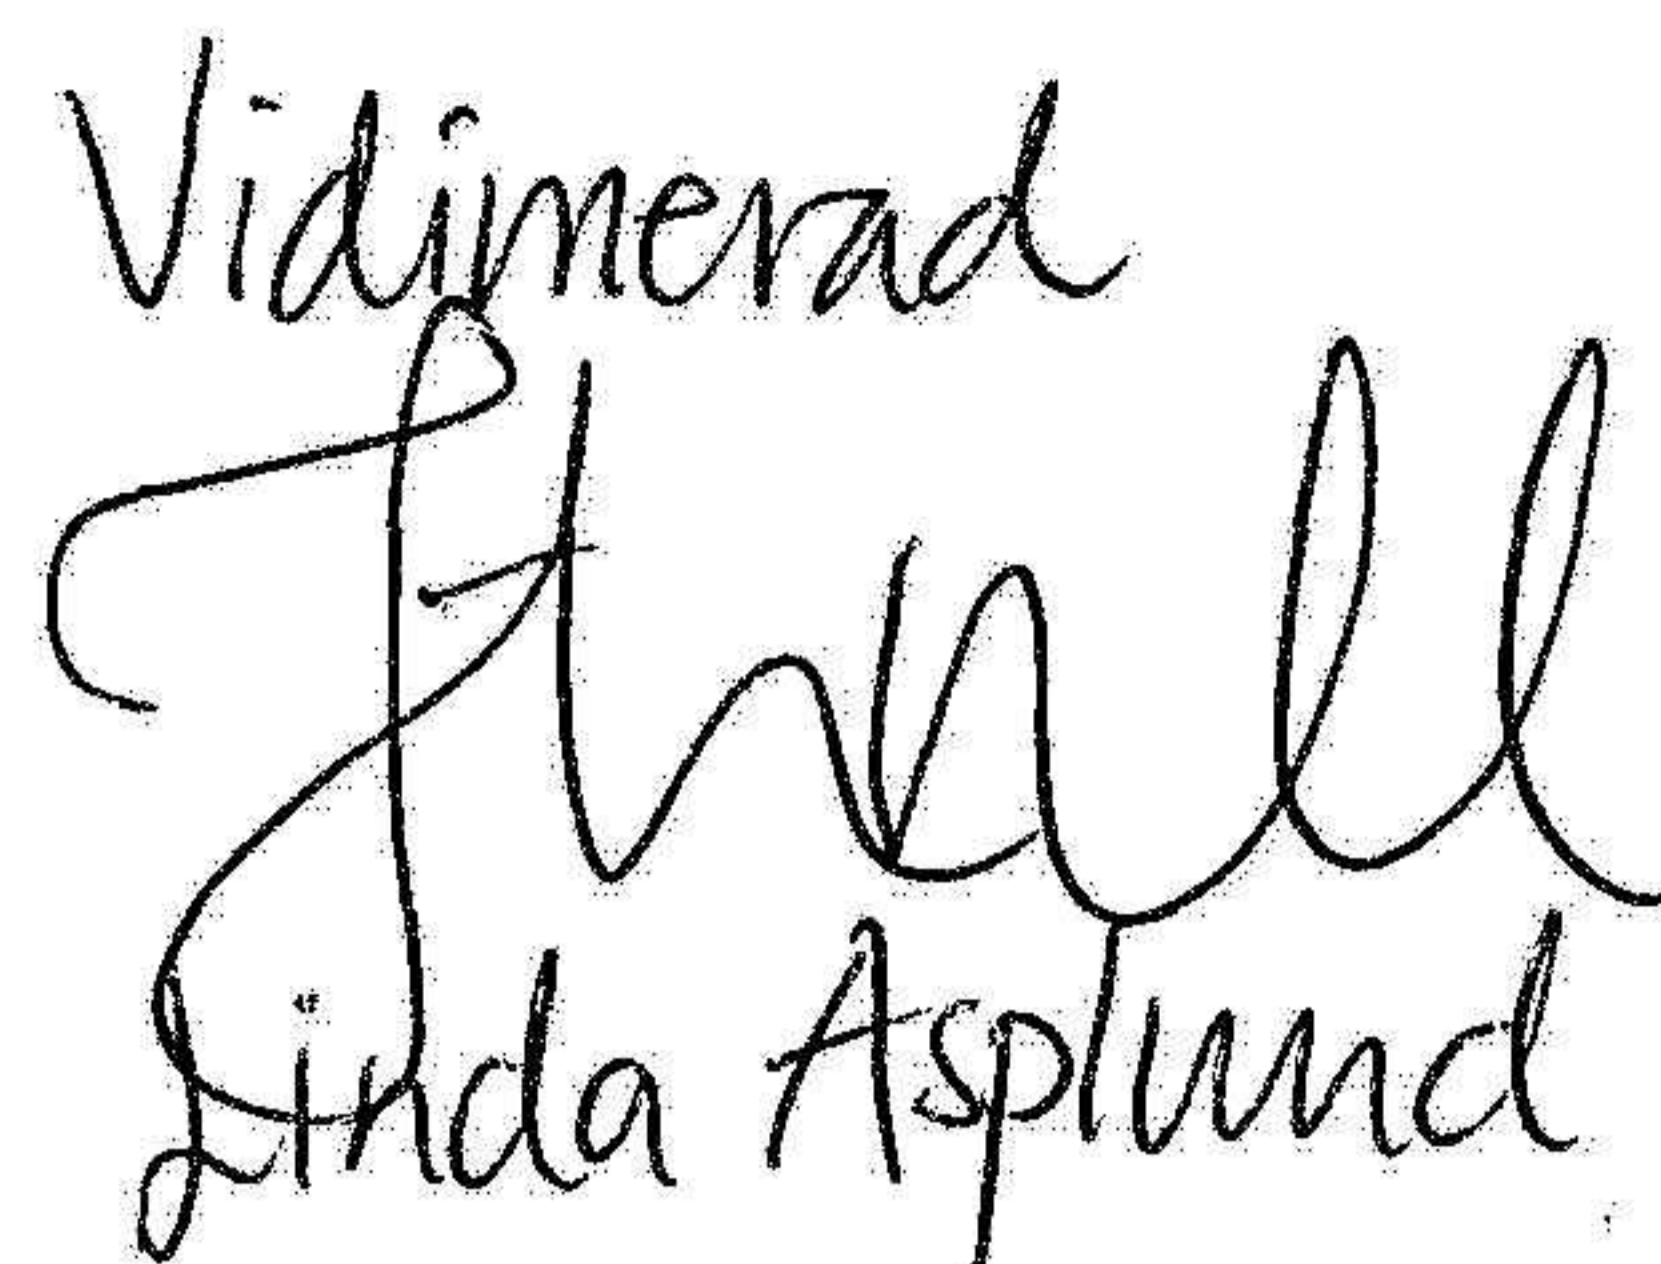 Vidimerad
Linda Asplund